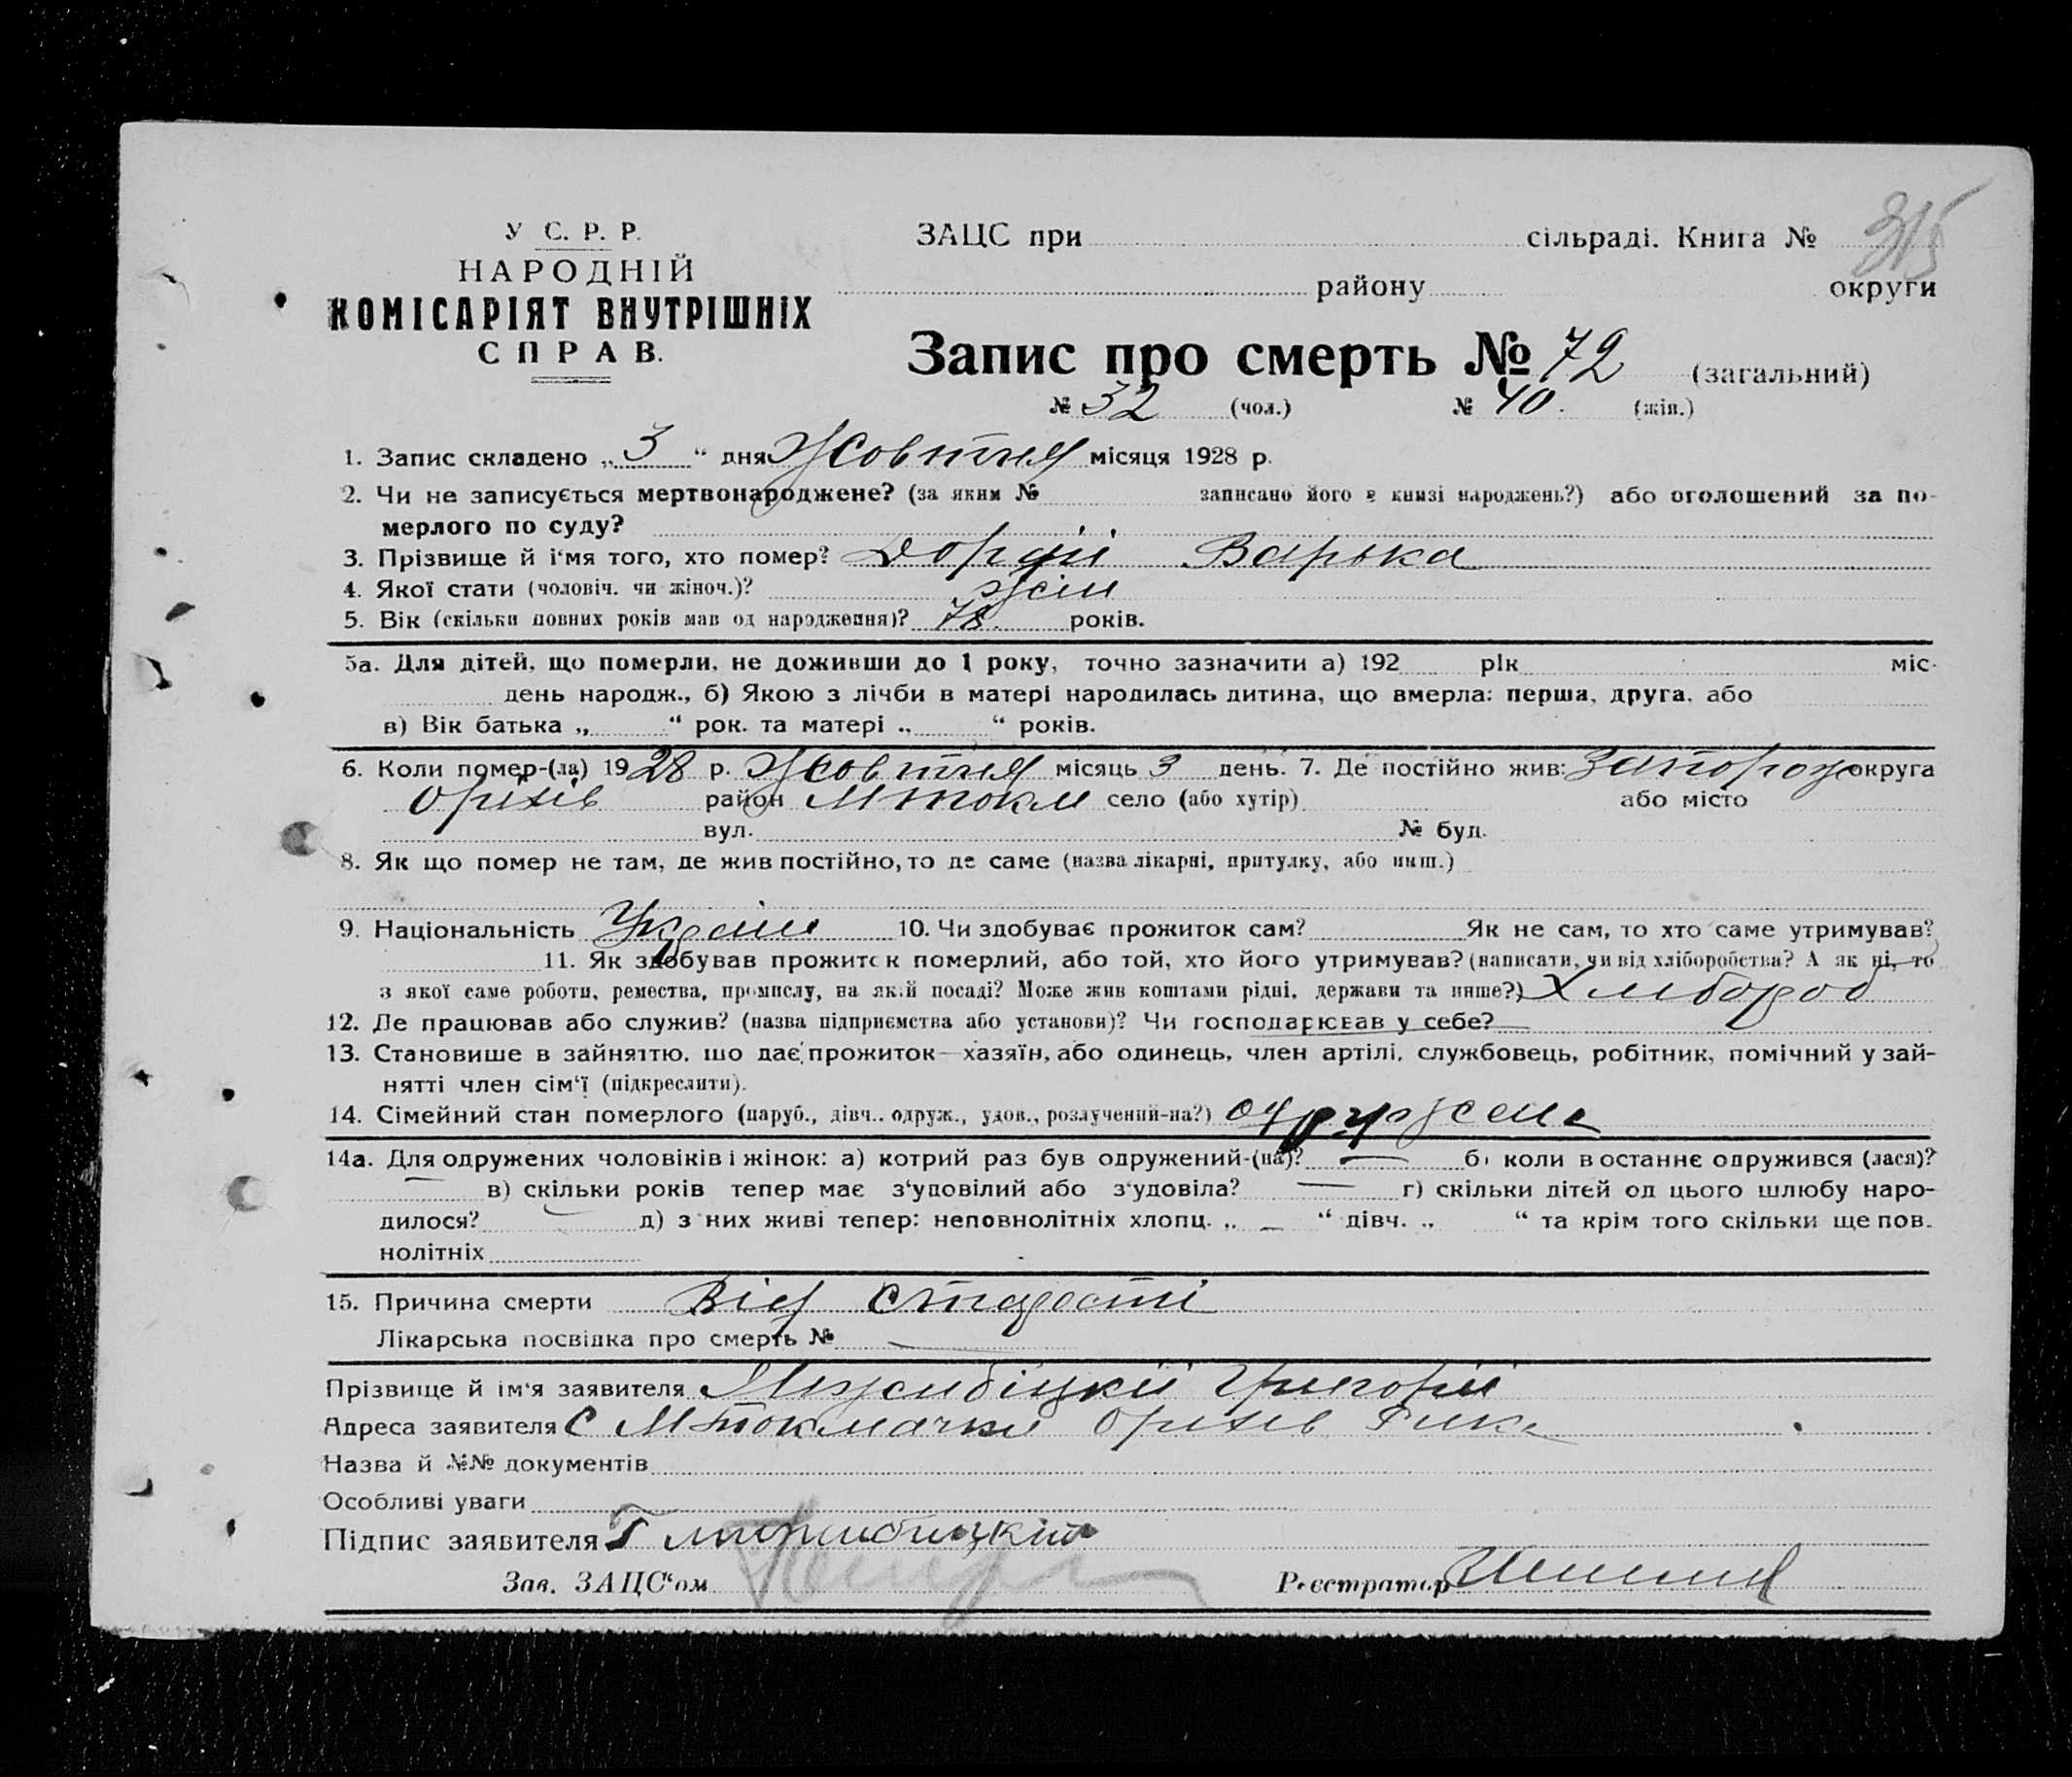 315
У С. Р. Р.
НАРОДНІЙ
КОМІСАРІЯТ ВНУТРІШНІХ
СПРАВ.
ЗАЦС при сільраді. Книга №
району округи
Запис про смерть № 72 (загальний)
№ 32 (чол.) № 40. (жін.)
1. Запис складено „3“ дня Жовтня місяця 1928 р.
2. Чи не записується мертвонароджене? (за яким № записано його в книзі народжень?) або оголошений за по-
мерлого по суду?
3. Прізвище й і'мя того, хто помер? Варька
4. Якої стати (чоловіч. чи жіноч.)? жін
5. Вік (скільки повних років мав од народження)? 78. років.
5а. Для дітей, що померли, не доживши до 1 року, точно зазначити а) 192 рік міс.
день народж., б) Якою з лічби в матері народилась дитина, що вмерла: перша, друга, або
в) Вік батька „ “ рок. та матері „ “ років.
6. Коли помер-(ла) 1928 р. Жовтня місяць 3 день. 7. Де постійно жив: Запорозь округа
Оріхів район Мтокм село (або хутір) або місто
вул. № буд.
8. Як що помер не там, де жив постійно, то де саме (назва лікарні, притулку, або инш.)
9. Національність Україн 10. Чи здобуває прожиток сам? Як не сам, то хто саме утримував?
11. Як здобував прожиток померлий, або той, хто його утримував? (написати, чи від хліборобства? А як ні, то
з якої саме роботи, ремества, промислу, на якій посаді? Може жив коштами рідні, держави та инше?) Хлібороб
12. Де працював або служив? (назва підприємства або установи)? Чи господарював у себе?
13. Становище в зайняттю, що дає прожиток—хазяїн, або одинець, член артілі, службовець, робітник, помічний у зай-
нятті член сім'ї (підкреслити).
14. Сімейний стан померлого (паруб., дівч.. одруж., удов., розлучений-на?) одружена
14а. Для одружених чоловіків і жінок: а) котрий раз був одружений-(на)? — б) коли в останнє одружився (лася)?
— в) скільки років тепер має з'уповілий або з'удовіла? — г) скільки дітей од цього шлюбу наро-
дилося? — д) з них живі тепер: неповнолітніх хлопц. „ — “ дівч. „ “ та крім того скільки ще пов.
нолітніх
15. Причина смерти Від старості
Лікарська посвідка про смерть № —
Прізвище й ім'я заявителя Межибіцкій Григорій
Адреса заявителя с Мтокмачка Оріхів Р-на
Назва й №№ документів
Особливі уваги
Підпис заявителя Г
Зав. ЗАЦС'ом Реєстратор